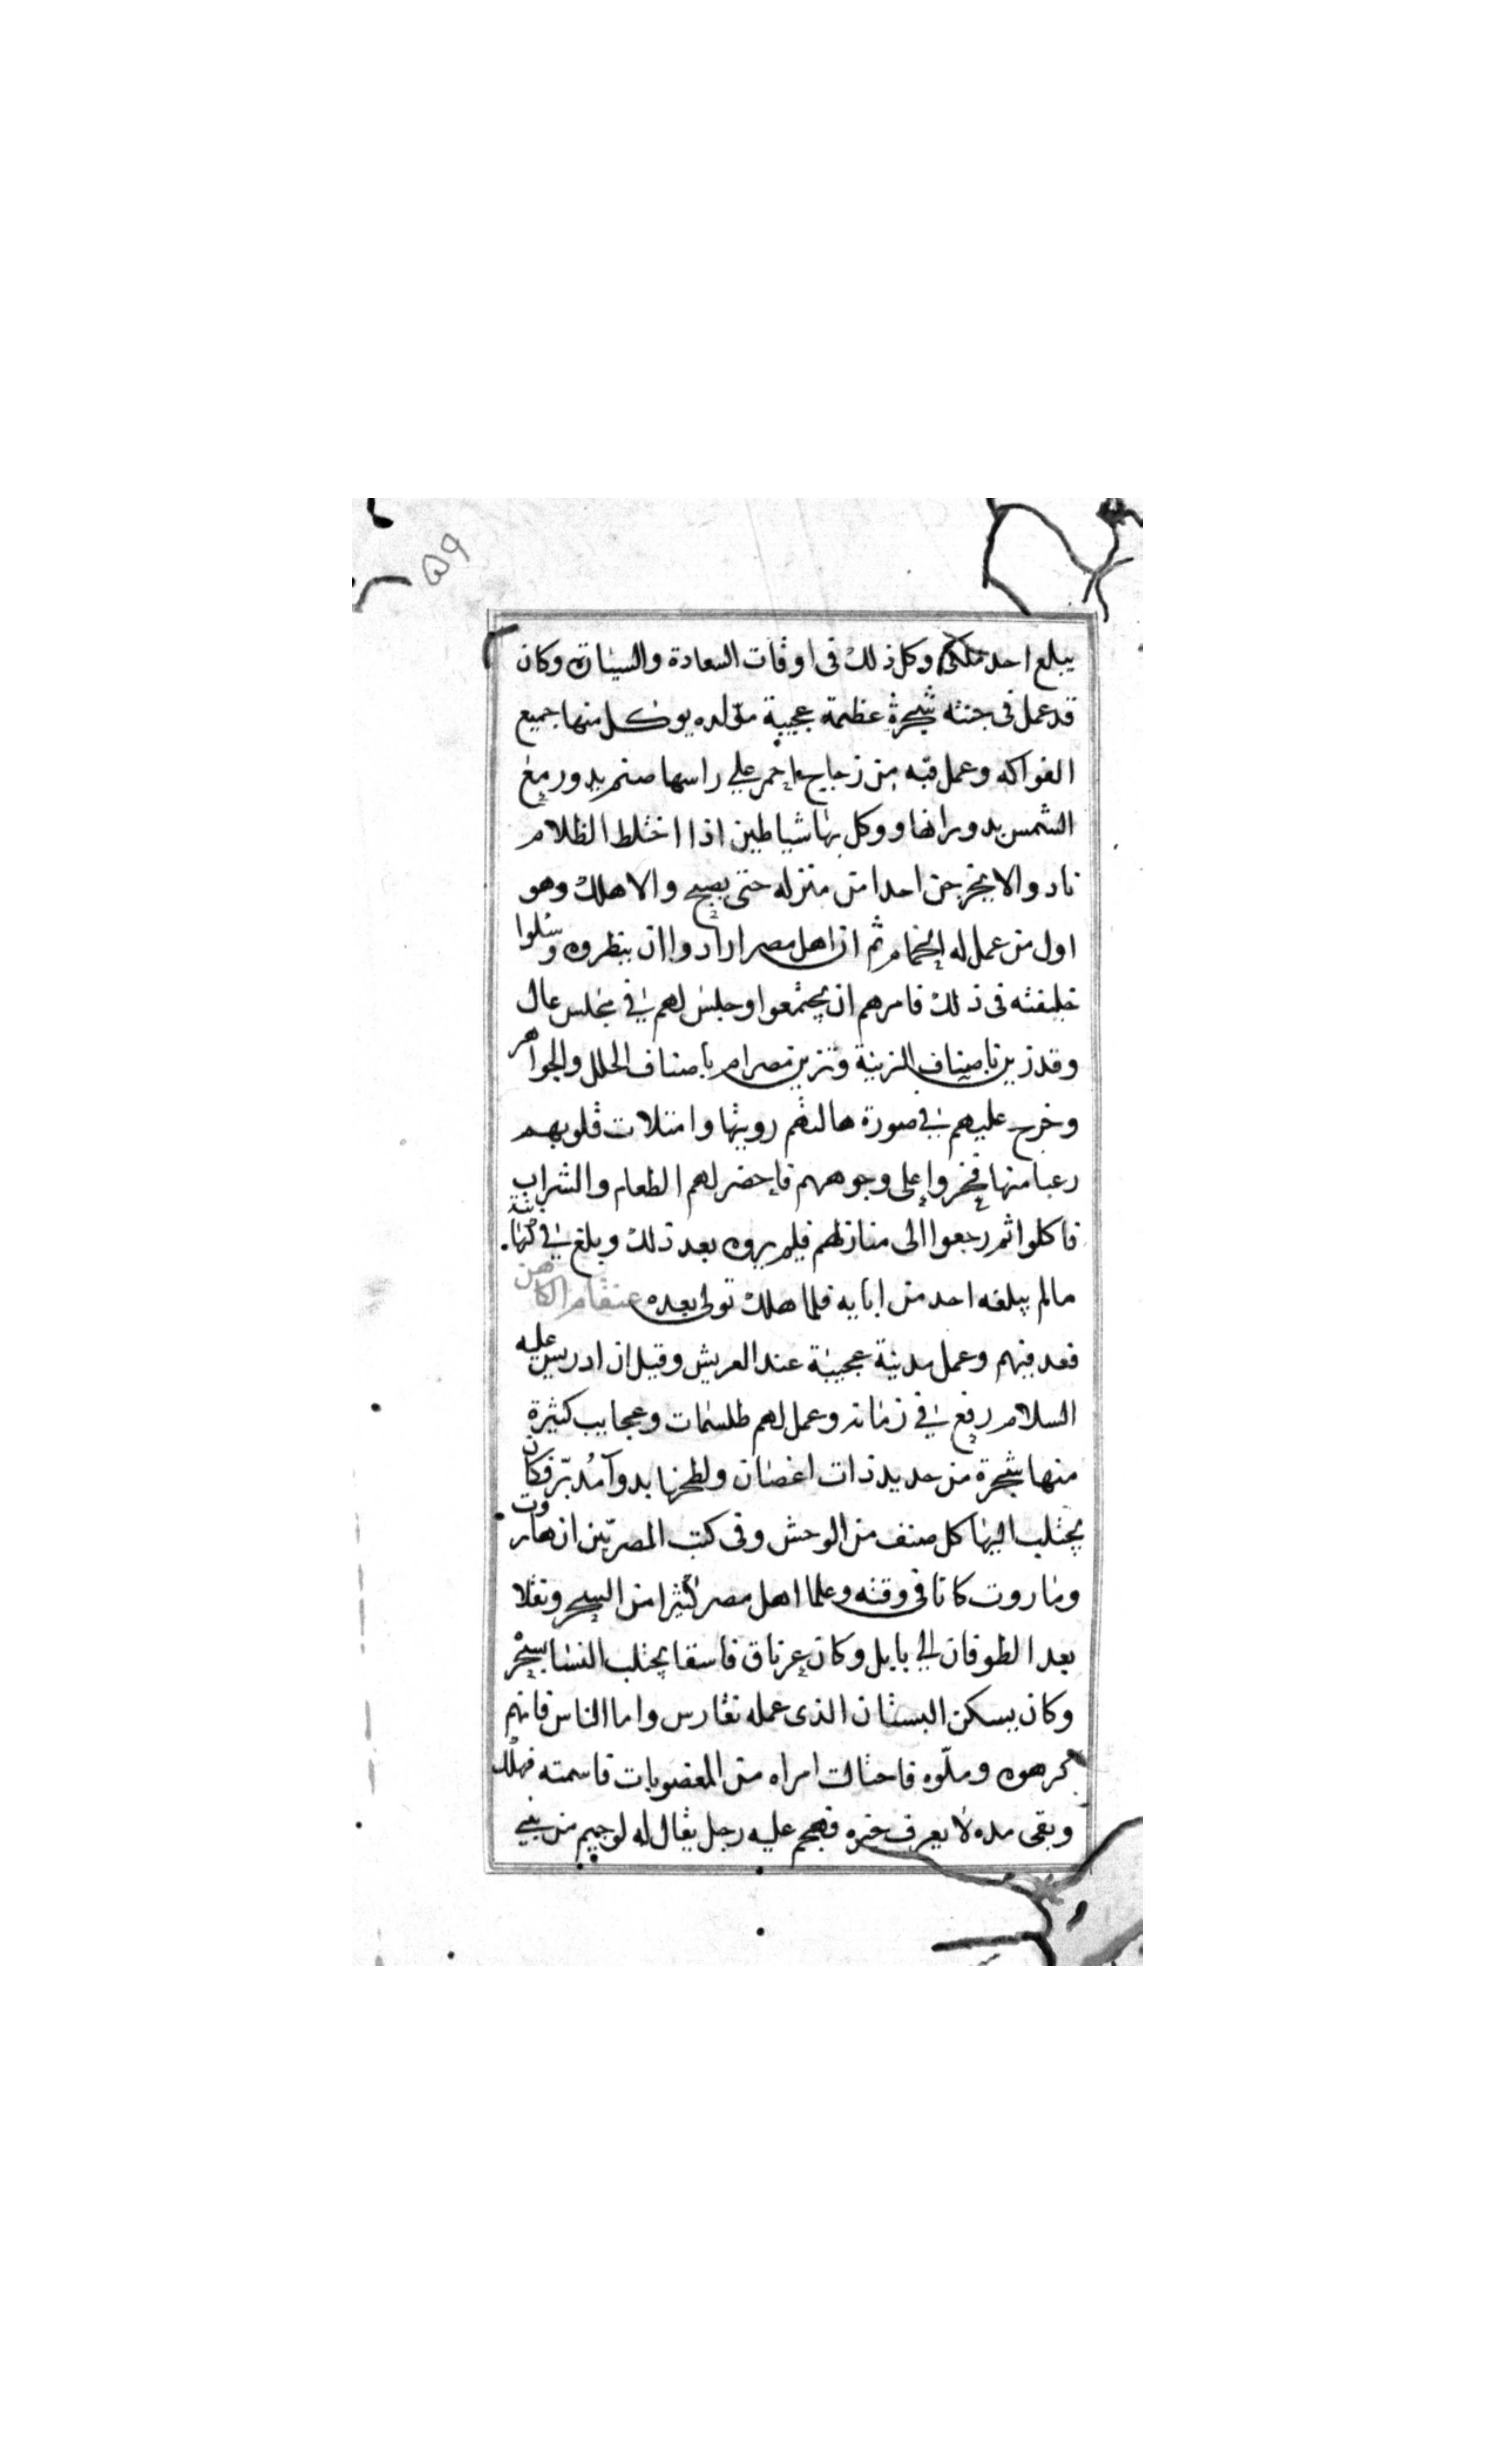 ٥٩
يبلغ احد ملكه وكل ذلك فى اوقات السعادة والسيارة وكان
قد عمل فى جنته شجرة عظيمة عجيبة مولده يوكل منها جميع
الفواكه وعمل قبه من زجاج احمر على راسها صنم يدور مع
الشمس بدورانها ووكل بها شياطين اذا اختلط الظلام
نادوا لا يخرجن احدا من منزله حتى يصبح والا هلك وهو
اول من عمل له الحمام ثم ان اهل مصر ارادوا ان ينظروه وسلوا
خليفته فى ذلك فامرهم ان يجتمعوا وجلس لهم في مجلس عال
وقد زين باصناف الزينة وتزين مصرام باصناف الحلل والجواهر
وخرج عليهم في صورة هالتهم رويتها وامتلات قلوبهم
رعبا منها فخروا على وجوههم فاحضر لهم الطعام والشراب
فاكلوا ثم رجعوا الى منازلهم فلم يروه بعد ذلك وبلغ في كهانته
مالم يبلغه احد من ابايه فلما هلك تولى بعده عنقام الكاهن
فعد فيهم وعمل مدينة عجيبة عند العريش وقيل ان ادريس عليه
السلام رفع في زمانه وعمل لهم طلسمات وعجايب كثيرة
منها شجرة من حديد ذات اغصان ولطخها بدوآ مُدبّر فكان
يجتلب اليها كل صنف من الوحش وفى كتب المصريّين ان هاروت
وماروت كانا فى وقته وعلما اهل مصر كثيرا من السحر ونقلا
بعد الطوفان الي بابل وكان عرناق فاسقا يجتلب النسا بسحره
وكان يسكن البستان الذى عمله نقارس واما الناس فانهم
كرهوه وملّوه فاحتالت امراه من المغضوبات فاسمته فهلك
وبقى مده لا يعرف خبره فهجم عليه رجل يقال له لوجيم من بني